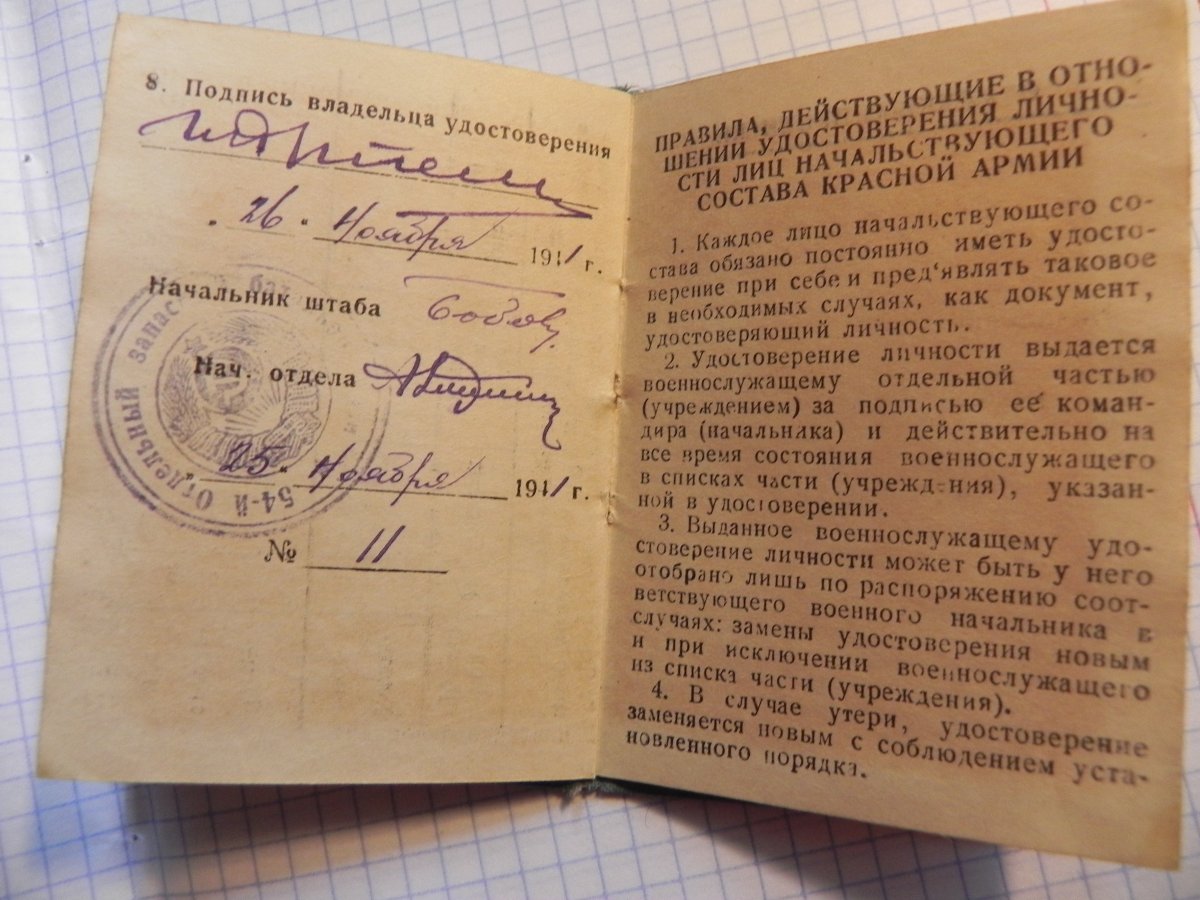 8. Подпись владельца удостоверения
„26“ Ноября 1941 г.
Начальник штаба
Нач. отдела
„25“ Ноября 1941 г.
№ 11
54-й Отдельный запас
ПРАВИЛА, ДЕЙСТВУЮЩИЕ В ОТНО-
ШЕНИИ УДОСТОВЕРЕНИЯ ЛИЧНО-
СТИ ЛИЦ НАЧАЛЬСТВУЮЩЕГО
СОСТАВА КРАСНОЙ АРМИИ
1. Каждое лицо начальствующего со-
става обязано постоянно иметь удосто-
верение при себе и пред‘являть таковое
в необходимых случаях, как документ,
удостоверяющий личность.
2. Удостоверение личности выдается
военнослужащему отдельной частью
(учреждением) за подписью ее коман-
дира (начальника) и действительно на
все время состояния военнослужащего
в списках части (учреждения), указан-
ной в удостоверении.
3. Выданное военнослужащему удо-
стоверение личности может быть у него
отобрано лишь по распоряжению соот-
ветствующего военного начальника в
случаях: замены удостоверения новым
и при исключении военнослужащего
из списка части (учреждения).
4. В случае утери, удостоверение
заменяется новым с соблюдением уста-
новленного порядка.